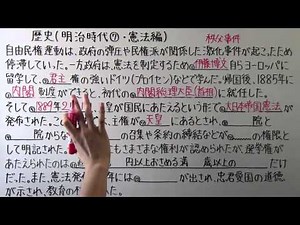 歴史(明治時代⑦・憲法編) 秩父事件
自由民権運動は、政府の弾圧や民権派が関係した激化事件が起こったため
停滞していた。一方政府は、憲法を制定するため⓪伊藤博文自らヨーロッパに
留学し、君主権の強いドイツ(プロイセン)などで学んだ。帰国後、1885年に
内閣制度ができると、初代の内閣総理大臣(首相)に就任した。
そして1889年2 が国民にあたえるという大日本帝国憲法が
発布された。こ では、天皇にあるとされ、
院から の召集や条約の締結などが の権限と
して明記された。 もさまざまな権利が認められたが、選挙権が
あたえられたのは 円以上おさめる満 歳以上の だけ
だった。また、憲法発 年には が出され、忠君愛国の道徳
が示され、教育の